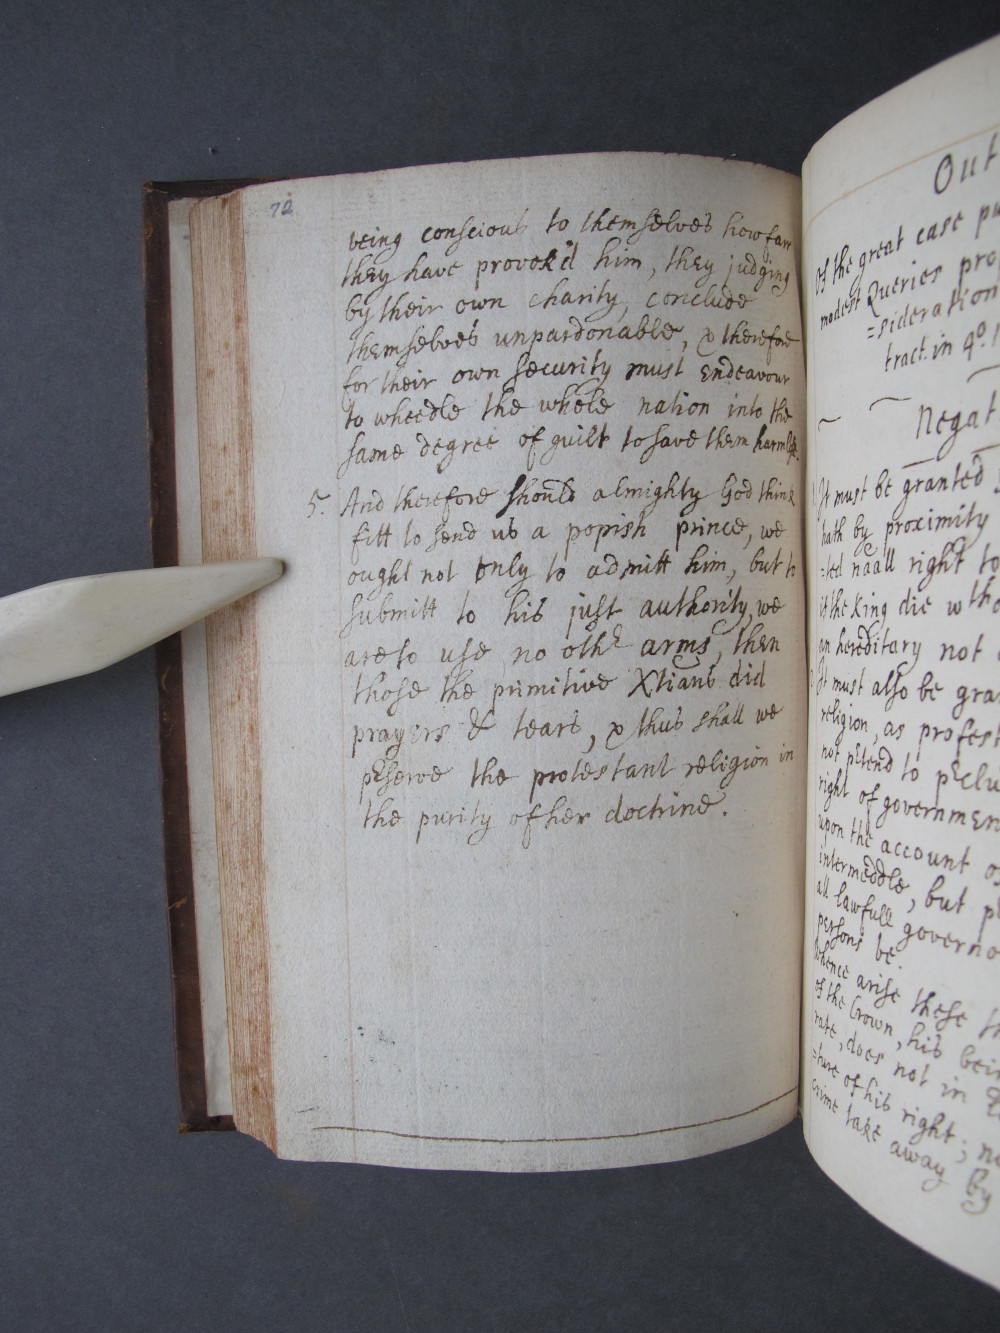 72
being conscious to themselves how farr
they have provok'd him, they judging
by their own charity, conclude
themselves unpardonable, & therefore
for their own security must endeavour
to wheedle the whole nation into the
same degree of guilt to save them harmless.
5. And therefore should almighty God think
fitt to send us a popish prince, we
ought not only to admitt him, but to
submitt to his just authority, we
are to use no othr arms, then
those the primitive Xtians did
prayers & tears, & thus shall we
pserve the protestant religion in
the purity of her doctrine.
Out
Of the great case
modest Queries pro
=sideration
tract. in 4o.
Negat
It must be granted
hath by proximity
=ted naall right to
if the King die wtho
an hereditary not
It must also be gra
religion, as profest
not ptend to pclu
right of governmen
upon the account of
intermeddle, but p
all lawfull governo
persons be.
Whence arise these
of the Crown, his bein
rate, does not in
=ture of his right; no
crime take away by